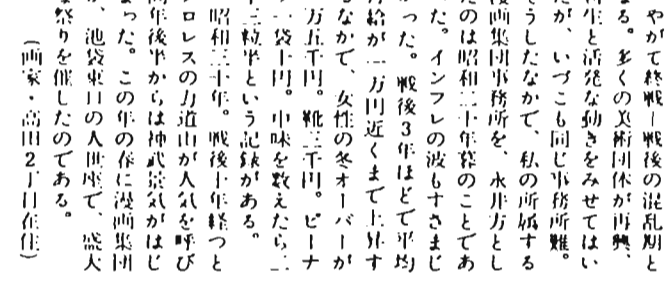 やがて終戦―戦後の混乱期と
なる。多くの美術団体が再興、
再生と活発な動きをみせてはい
たが、いづこも同じ事務所難。
そうしたなかで、私の所属する
漫画集団事務所を、永井方とし
たのは昭和二十年暮のことであ
った。インフレの波もすさまじ
かった。戦後3年ほどで平均
月給が一万円近くまで上昇す
るなかで、女性の冬オーバーが
万五千円。靴三千円。ピーナ
一袋十円。中味を数えたら、二
十三粒半という記録がある。
昭和三十年。戦後十年経つと
プロレスの力道山が人気を呼び
同年後半からは神武景気がはじ
まった。この年の春に漫画集団
が、池袋東口の人世座で、盛大
な祭りを催したのである。
（画家・高田2丁目在住）